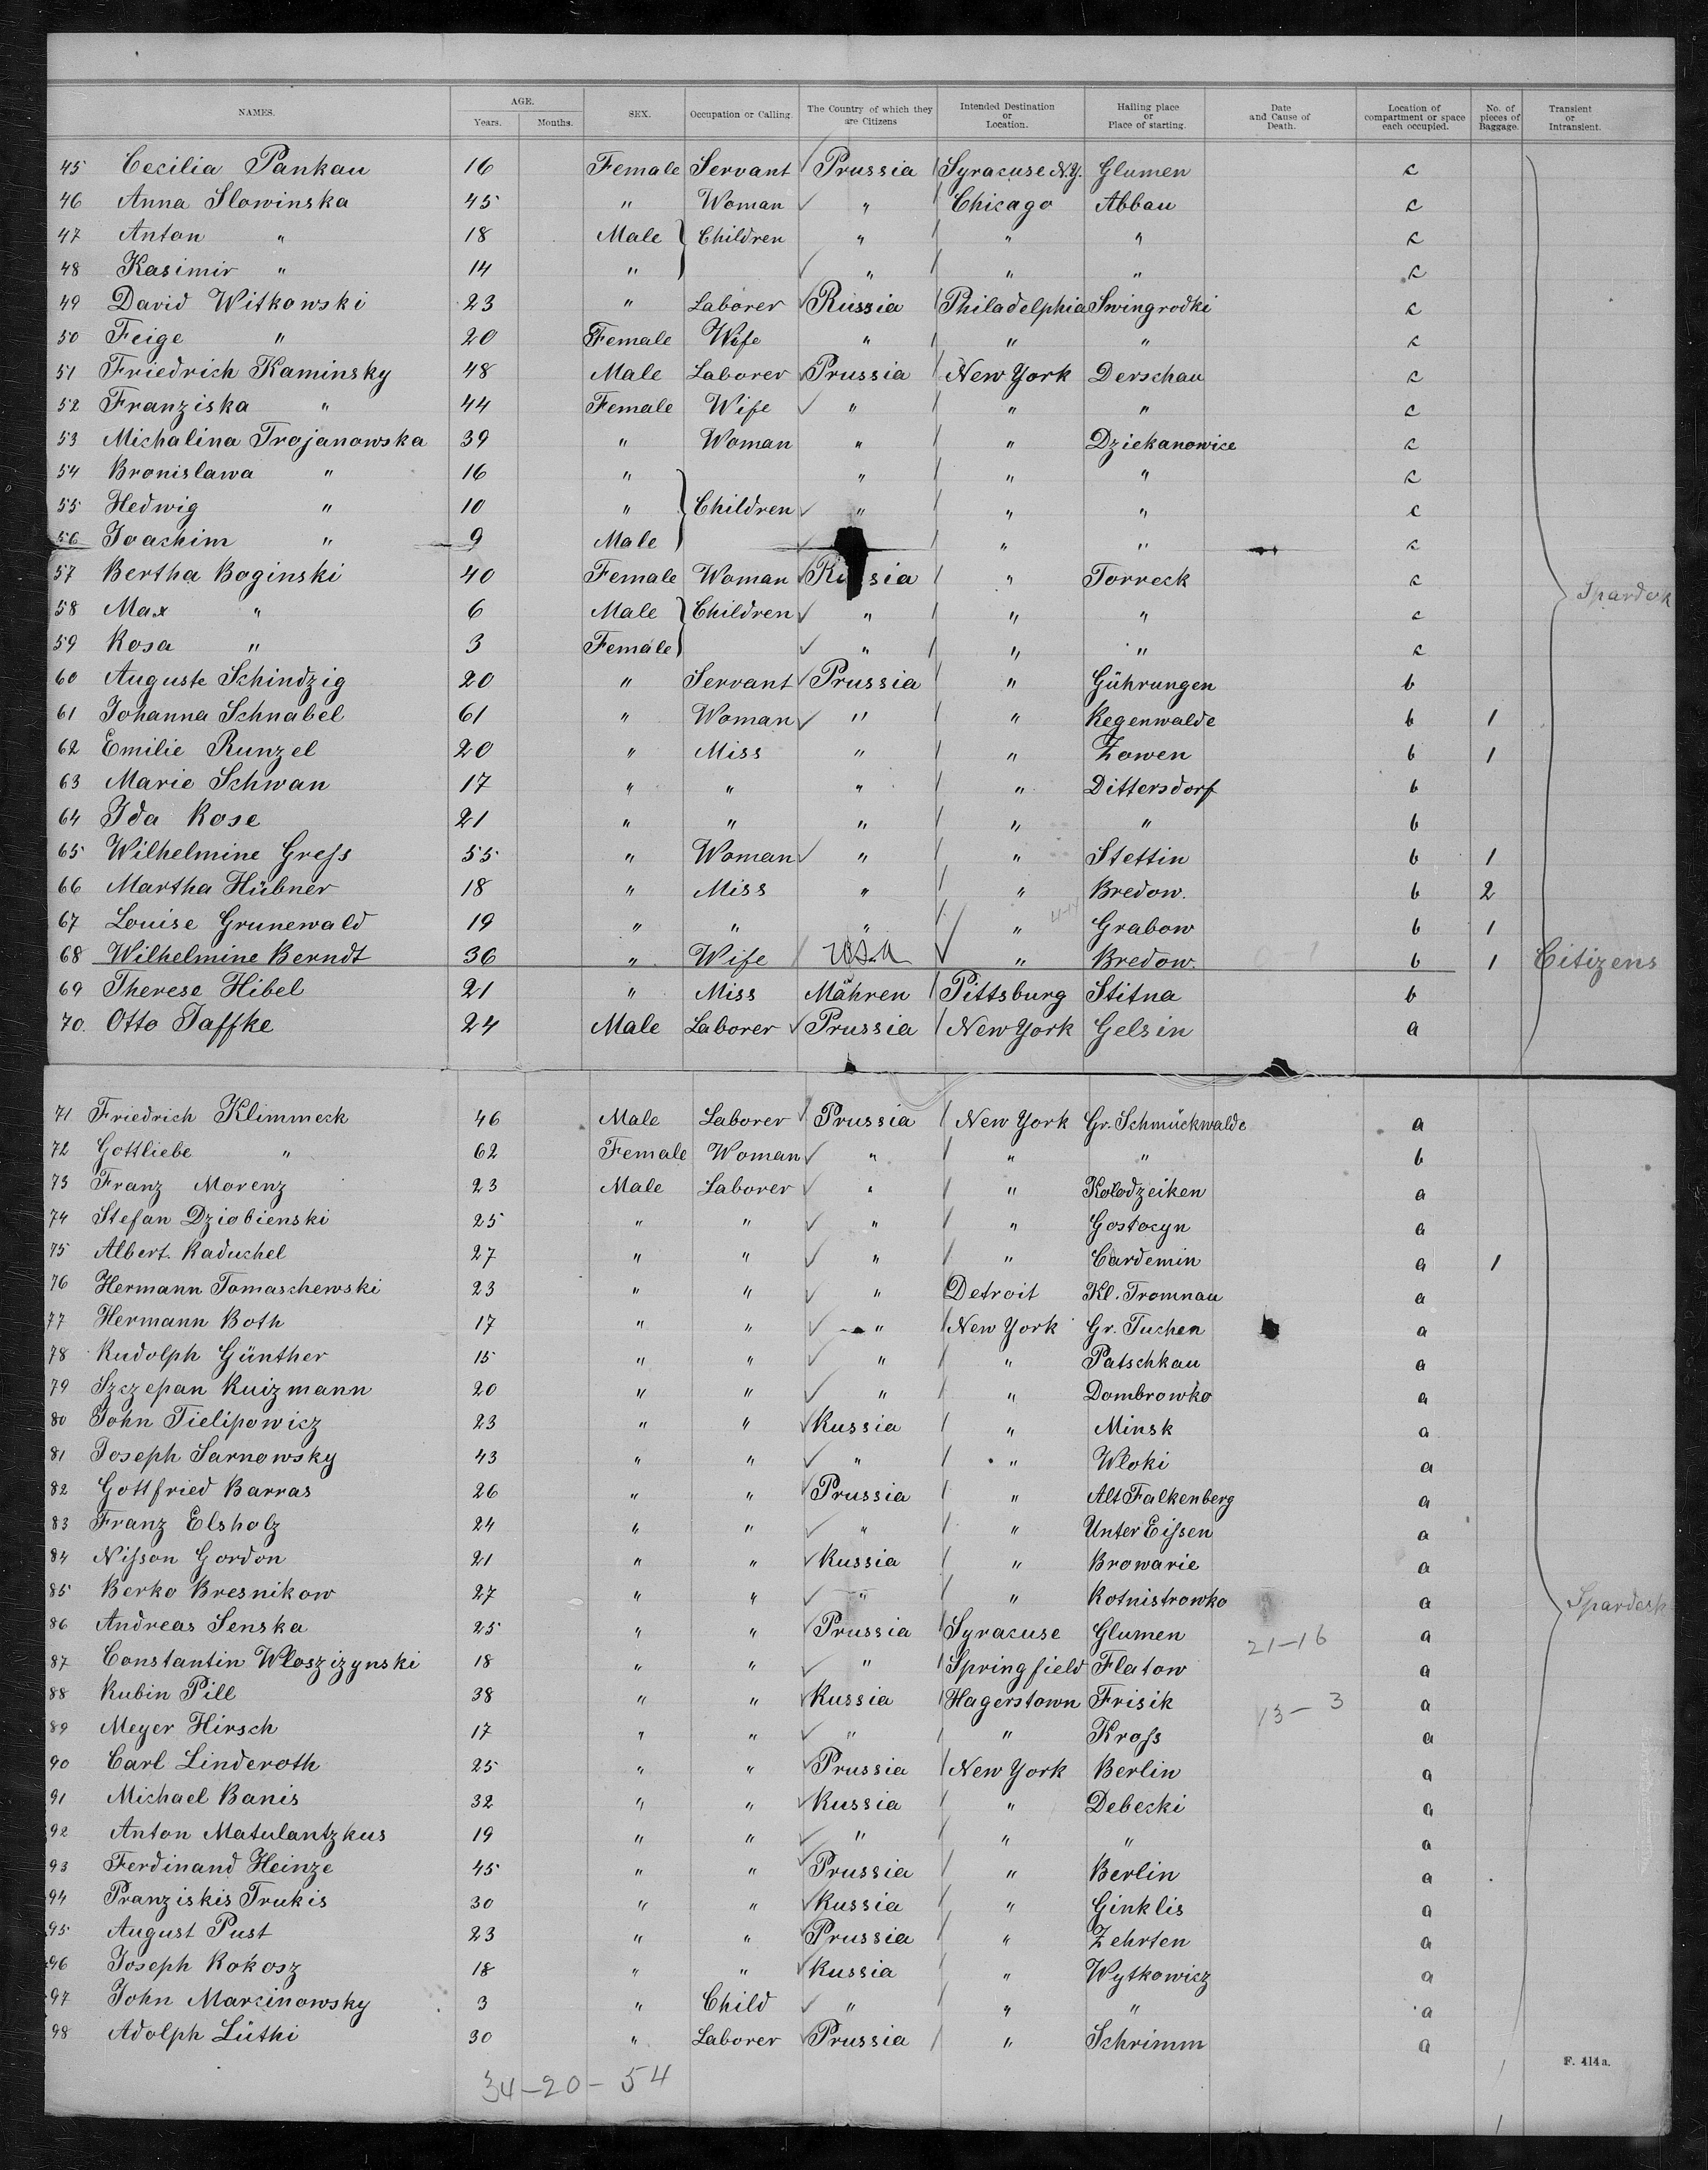 NAMES. AGE. Years. Months. SEX. Occupation or Calling. The Country of which they are Citizens Intended Destination or Location. Hailing place or Place of starting. Date and Cause of Death. Location of compartment or space each occupied. No. of pieces of Baggage. Transient or Intransient.
45 Cecilia Pankau 16 Female Servant Prussia Syracuse N.Y. Glumen c
46 Anna Slowinska 45 " Woman " Chicago Abbau c
47 Anton " 18 Male Children " " " c
48 Kasimir " 14 " " " " c
49 David Witkowski 23 " Laborer Russia Philadelphia Swingrodki c
50 Feige " 20 Female Wife " " " c
51 Friedrich Kaminsky 48 Male Laborer Prussia New York Derschau c
52 Franziska " 44 Female Wife " " " c
53 Michalina Trojanowska 39 " Woman " " Dziekanowice c
54 Bronislawa " 16 " " " " c
55 Hedwig " 10 " Children " " " c
56 Joachim " 9 Male " " c
57 Bertha Boginski 40 Female Woman Russia " Torreck c
58 Max " 6 Male Children " " " c Spardeck
59 Rosa " 3 Female " " " c
60 Auguste Schindzig 20 " Servant Prussia " Gührungen b
61 Johanna Schnabel 61 " Woman " " Regenwalde b 1
62 Emilie Runzel 20 " Miss " " Zowen b 1
63 Marie Schwan 17 " " " " Dittersdorf b
64 Ida Rose 21 " " " " " b
65 Wilhelmine Gress 55 " Woman " " Stettin b 1
66 Martha Hübner 18 " Miss " " Bredow. b 2
67 Louise Grunewald 19 " " " " Grabow b 1
68 Wilhelmine Berndt 36 " Wife USA " Bredow. b 1 Citizens
69 Therese Hibel 21 " Miss Mähren Pittsburg Stitna b
70. Otto Taffke 24 Male Laborer Prussia New York Gelsin a
71 Friedrich Klimmeck 46 Male Laborer Prussia New York Gr. Schmückwalde a
72 Gottliebe " 62 Female Woman " " " b
73 Franz Morenz 23 Male Laborer " " Kolodzeiken a
74 Stefan Dziobienski 25 " " " " Gostocyn a
75 Albert Raduchel 27 " " " " Cardemin a 1
76 Hermann Tomaschewski 23 " " " Detroit Kl. Tromnau a
77 Hermann Both 17 " " " New York Gr. Tuchen a
78 Rudolph Günther 15 " " " " Patschkau a
79 Szczepan Kuizmann 20 " " " " Dombrowko a
80 John Tielipowicz 23 " " Russia " Minsk a
81 Joseph Sarnowsky 43 " " " " Wloki a
82 Gottfried Barras 26 " " Prussia " Alt Falkenberg a
83 Franz Elsholz 24 " " " " Unter Eissen a
84 Nisson Gordon 21 " " Russia " Browarie a
85 Berko Bresnikow 27 " " " " Kotnistrowko a
86 Andreas Senska 25 " " Prussia Syracuse Glumen 21-16 a Spardeck
87 Constantin Wloszizynski 18 " " " Springfield Flatow a
88 Rubin Pill 38 " " Russia Hagerstown Frisik 13-3 a
89 Meyer Hirsch 17 " " " " Kross a
90 Carl Linderoth 25 " " Prussia New York Berlin a
91 Michael Banis 32 " " Russia " Debecki a
92 Anton Matulantzkus 19 " " " " " a
93 Ferdinand Heinze 45 " " Prussia " Berlin a
94 Pranziskis Trukis 30 " " Russia " Ginklis a
95 August Pust 23 " " Prussia " Zehrten a
96 Joseph Kokosz 18 " " Russia " Wytkowicz a
97 John Marcinowsky 3 " Child " " " a
98 Adolph Lüthi 30 " Laborer Prussia " Schrimm a
F. 414 a.
34-20-54